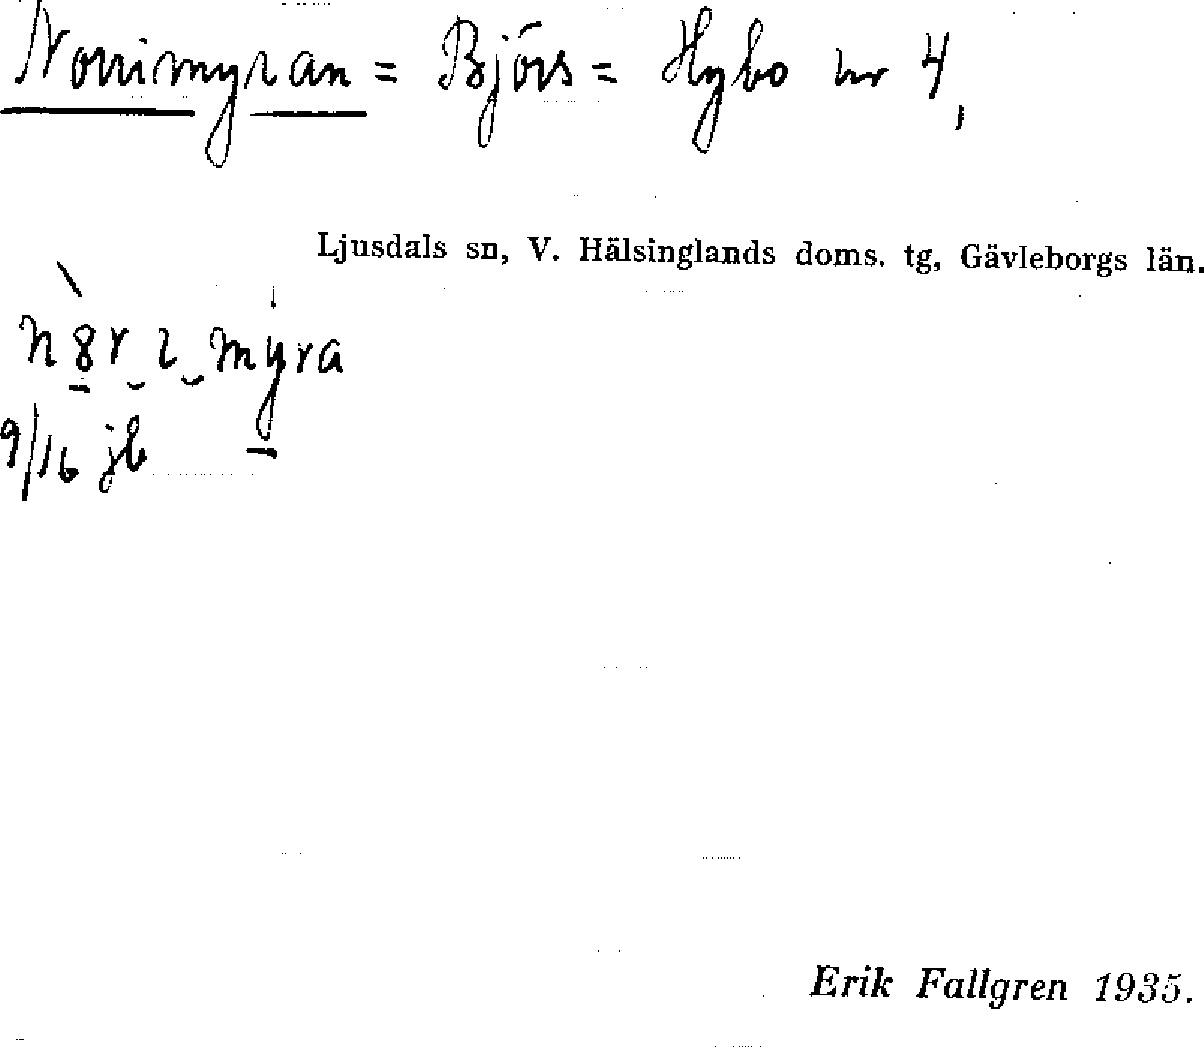 Norrimyran = Björs = Hybo nr 4,
Ljusdals sn, V. Hälsinglands doms. tg, Gävleborgs län.
n8r ı myra
9/16 jb
Erik Fallgren 1935.